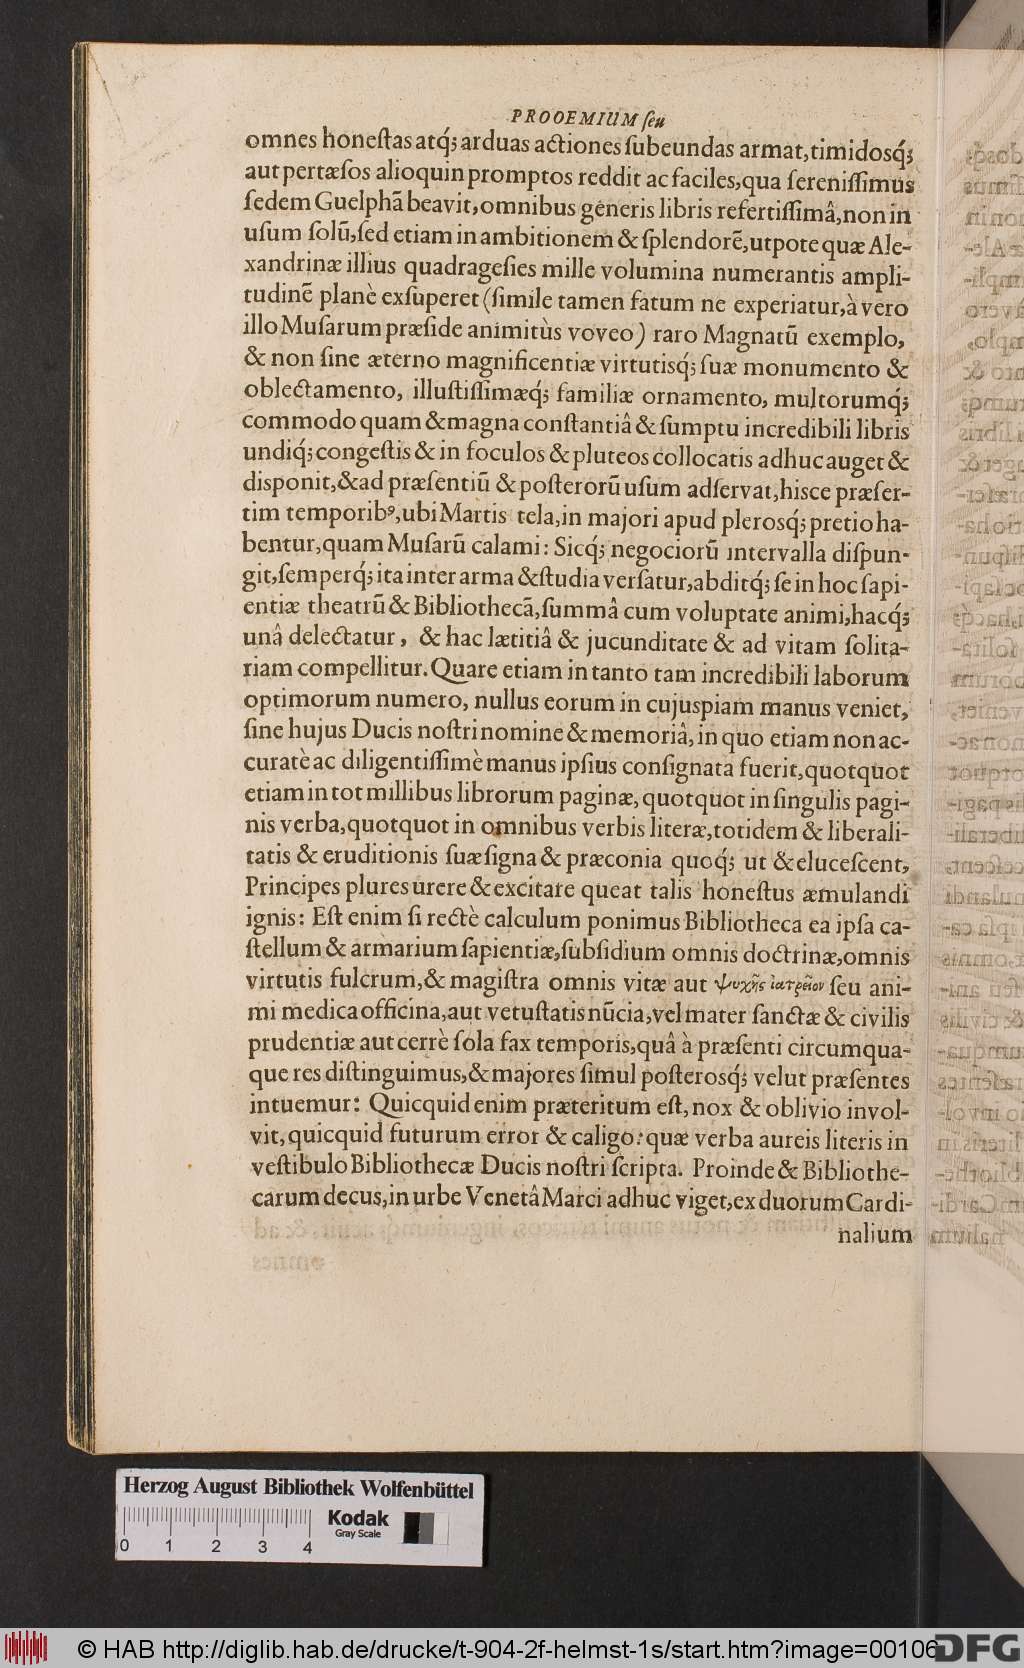 PROOEMIUM ſeu
omnes honeſtas atq́; arduas actiones ſubeundas armat, timidosq́;
aut pertæſos alioquin promptos reddit ac faciles, qua ſereniſſimus
ſedem Guelphã beavit, omnibus generis libris refertiſſimâ, non in
uſum ſolũ, ſed etiam in ambitionem & ſplendorẽ, utpote quæ Ale-
xandrinæ illius quadrageſies mille volumina numerantis ampli-
tudinẽ planè exſuperet (ſimile tamen fatum ne experiatur, à vero
illo Muſarum præſide animitùs voveo) raro Magnatũ exemplo,
& non ſine æterno magnificentiæ virtutisq́; ſuæ monumento &
oblectamento, illuſtiſſimæq́; familiæ ornamento, multorumq́;
commodo quam & magna conſtantiâ & ſumptu incredibili libris
undiq́; congeſtis & in foculos & pluteos collocatis adhuc auget &
diſponit, & ad præſentiũ & poſterorũ uſum adſervat, hisce præſer-
tim temporibꝰ, ubi Martis tela, in majori apud plerosq́; pretio ha-
bentur, quam Muſarũ calami: Sicq́; negociorũ intervalla diſpun-
git, ſemperq́; ita inter arma & ſtudia verſatur, abditq́; ſe in hoc ſapi-
entiæ theatrũ & Bibliothecã, ſummâ cum voluptate animi, hacq́;
unâ delectatur, & hac lætitiâ & jucunditate & ad vitam ſolita-
riam compellitur. Quare etiam in tanto tam incredibili laborum
optimorum numero, nullus eorum in cujuspiam manus veniet,
ſine hujus Ducis noſtri nomine & memoriâ, in quo etiam non ac-
curatè ac diligentiſſimè manus ipſius conſignata fuerit, quotquot
etiam in tot millibus librorum paginæ, quotquot in ſingulis pagi-
nis verba, quotquot in omnibus verbis literæ, totidem & liberali-
tatis & eruditionis ſuæ ſigna & præconia quoq́; ut & eluceſcent,
Principes plures urere & excitare queat talis honeſtus æmulandi
ignis: Eſt enim ſi rectè calculum ponimus Bibliotheca ea ipſa ca-
ſtellum & armarium ſapientiæ, ſubſidium omnis doctrinæ, omnis
virtutis fulcrum, & magiſtra omnis vitæ aut ψυχῆς ἰατρεῖον ſeu ani-
mi medica officina, aut vetuſtatis nũcia, vel mater ſanctæ & civilis
prudentiæ aut cerrè ſola fax temporis, quâ à præſenti circumqua-
que res diſtinguimus, & majores ſimul poſterosq́; velut præſentes
intuemur: Quicquid enim præteritum eſt, nox & oblivio invol-
vit, quicquid futurum error & caligo: quæ verba aureis literis in
veſtibulo Bibliothecæ Ducis noſtri ſcripta. Proinde & Bibliothe-
carum decus, in urbe Venetâ Marci adhuc viget, ex duorum Cardi-
nalium
Herzog August Bibliothek Wolfenbüttel
Kodak
Gray Scale
0 1 2 3 4
© HAB http://diglib.hab.de/drucke/t-904-2f-helmst-1s/start.htm?image=00106
DFG